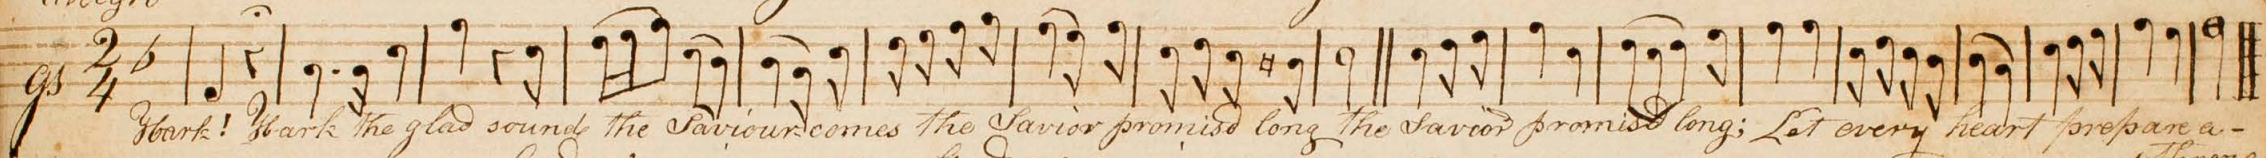 Allegro
Hark! Hark the glad sound the Saviour comes the Savior promisd long the Savior promisd long; Let every heart prepare a-